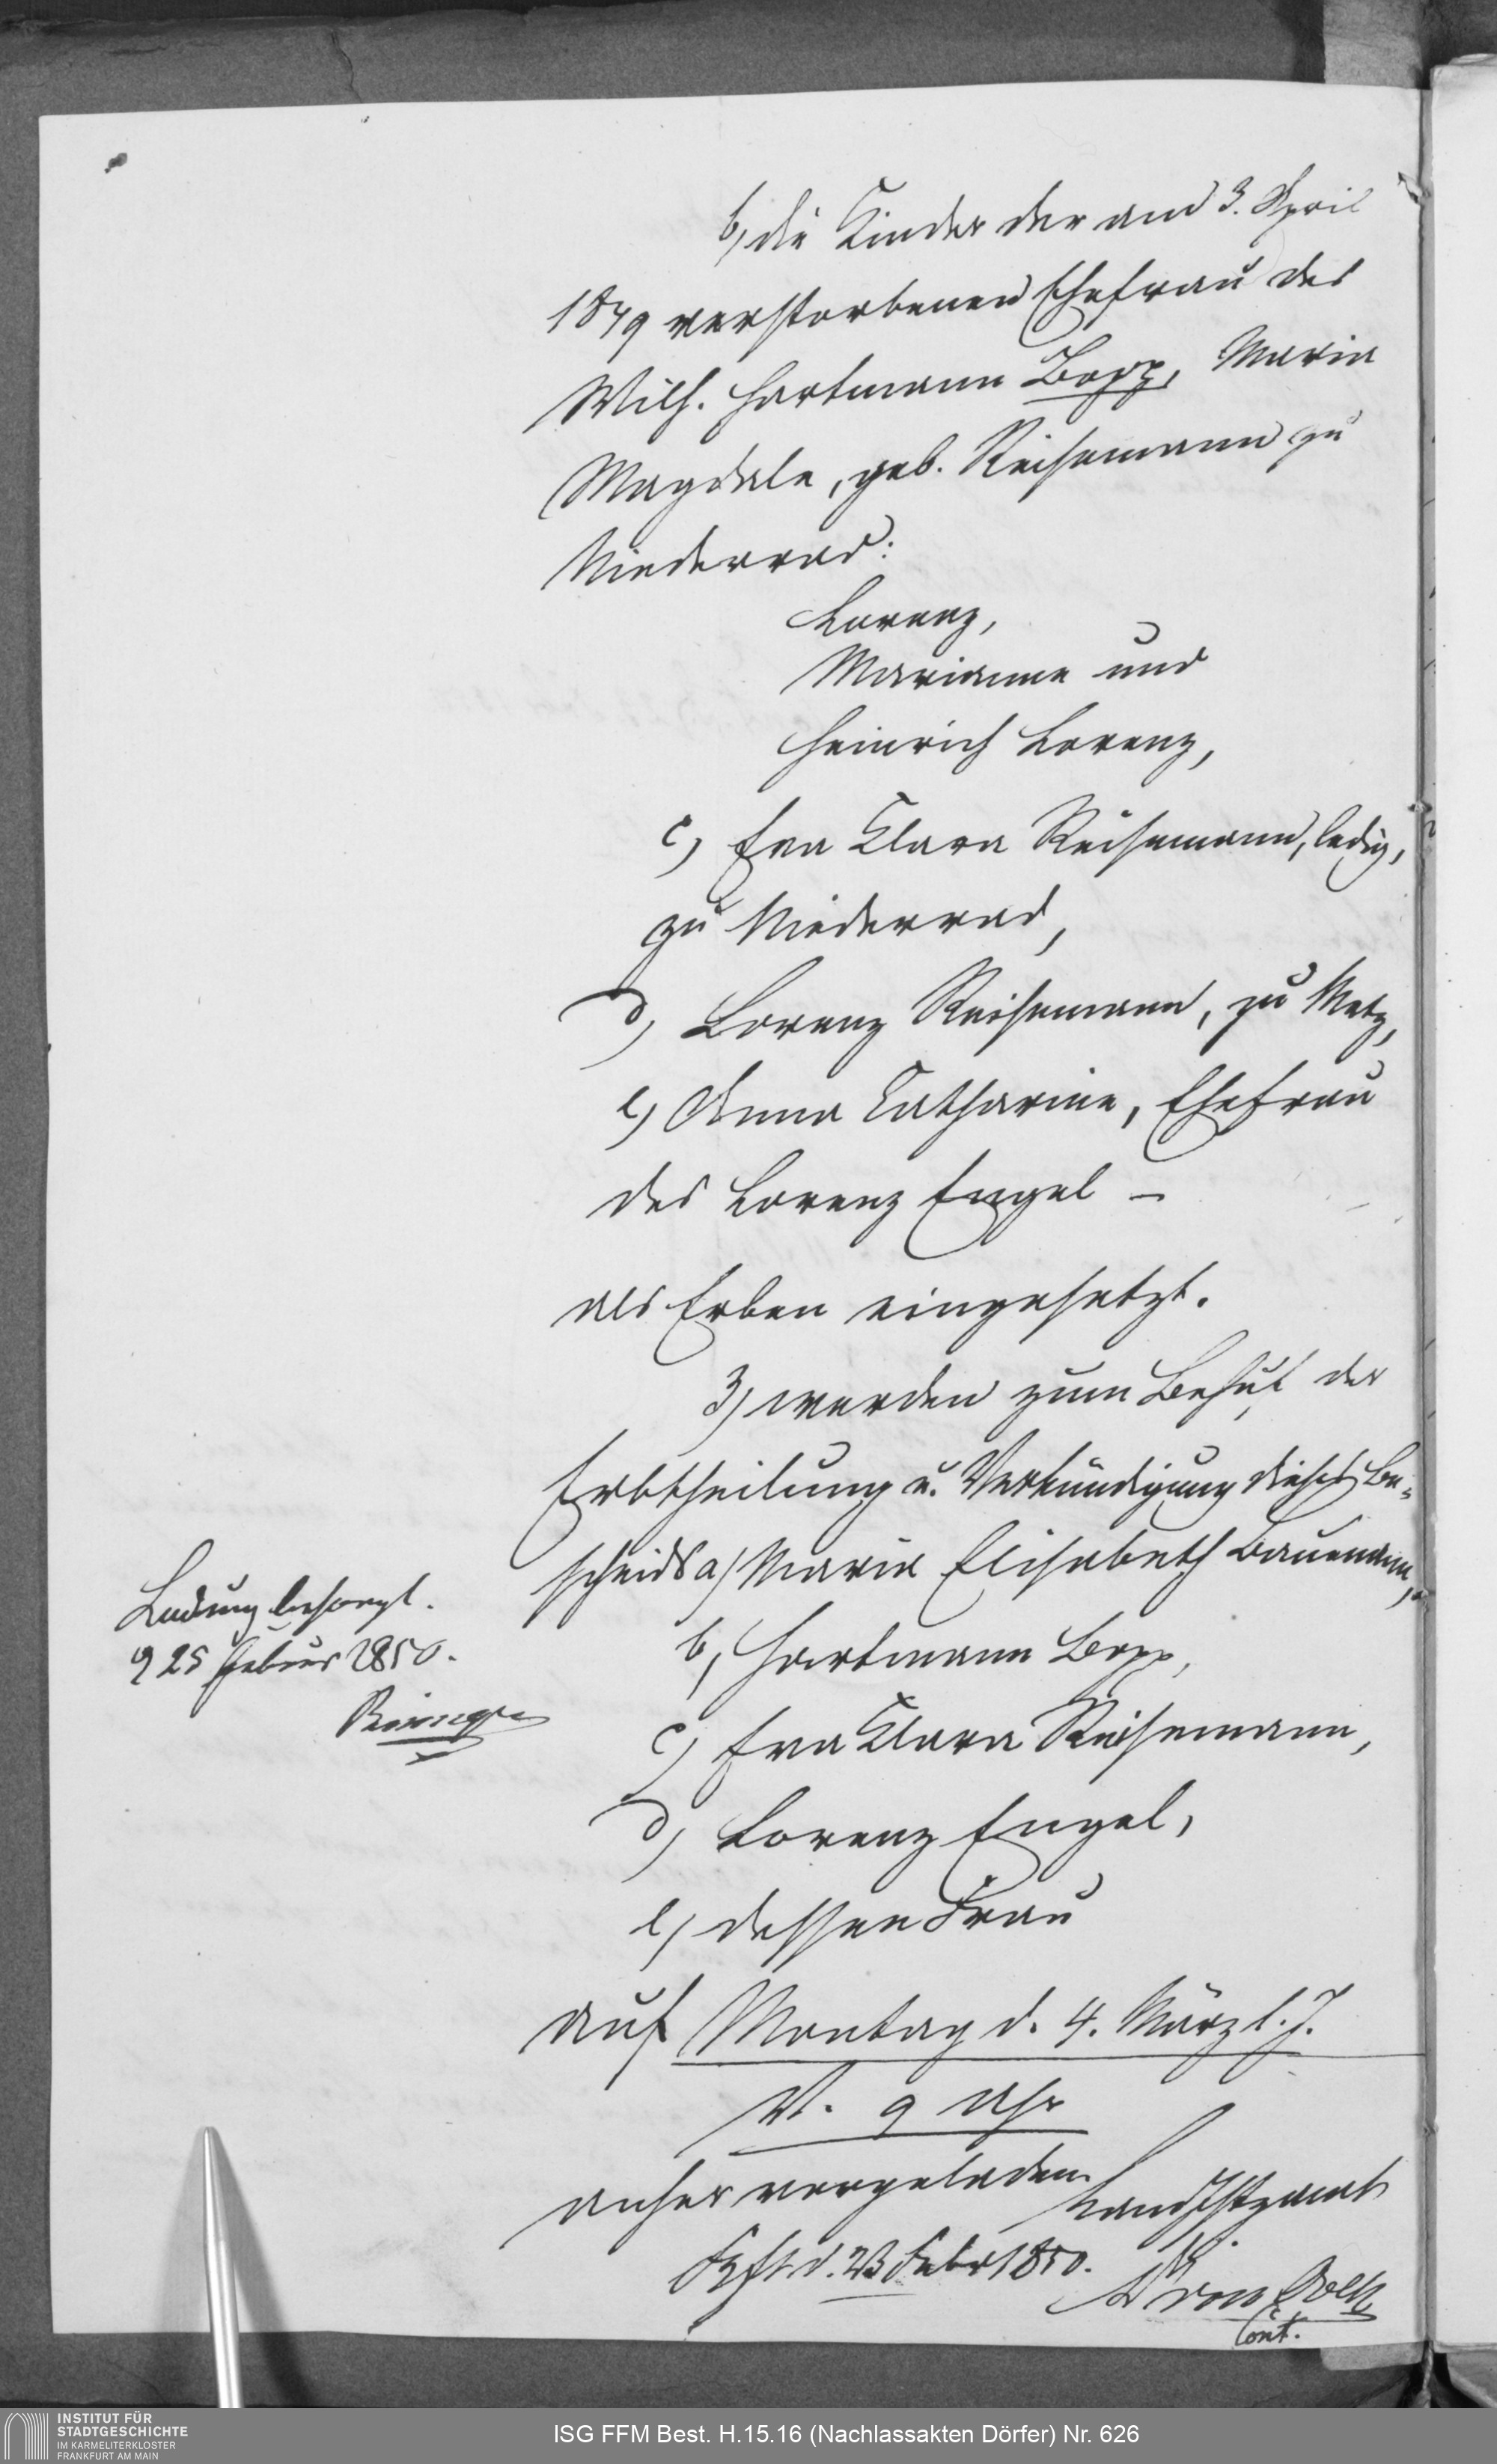 b, die Kinder der am 3. April
1849 verstorbenen Ehefrau des
Wilh. Hartmann Bopp, Maria
Magdale, geb. Reisemann zu
Niederrad:
Lorenz,
Marianne und
Heinrich Lorenz,
c, Eva Clara Reisemann, ledig,
zu Niederrad,
d, Lorenz Reisemann, zu Metz,
e, Anna Catharine, Ehefrau
des Lorenz Engel –
als Erben eingesetzt.
3, werden zum Behuf der
Erbtheilung u. Verkündigung dieses Be-
scheids a, Maria Elisabeth Bauemann,
b, Hartmann Bopp,
c, Eva Clara Reisemann,
d, Lorenz Engel,
e, dessen Frau
auf Montag d. 4. März l. J.
V. 9 Uhr
anher vorgeladen.
Landjustizamt
Ffst d. 23 Febr 1850.
Cont.
Ladung besorgt.
25 Februar 1850.
INSTITUT FÜR
STADTGESCHICHTE
IM KARMELITERKLOSTER
FRANKFURT AM MAIN
ISG FFM Best. H.15.16 (Nachlassakten Dörfer) Nr. 626